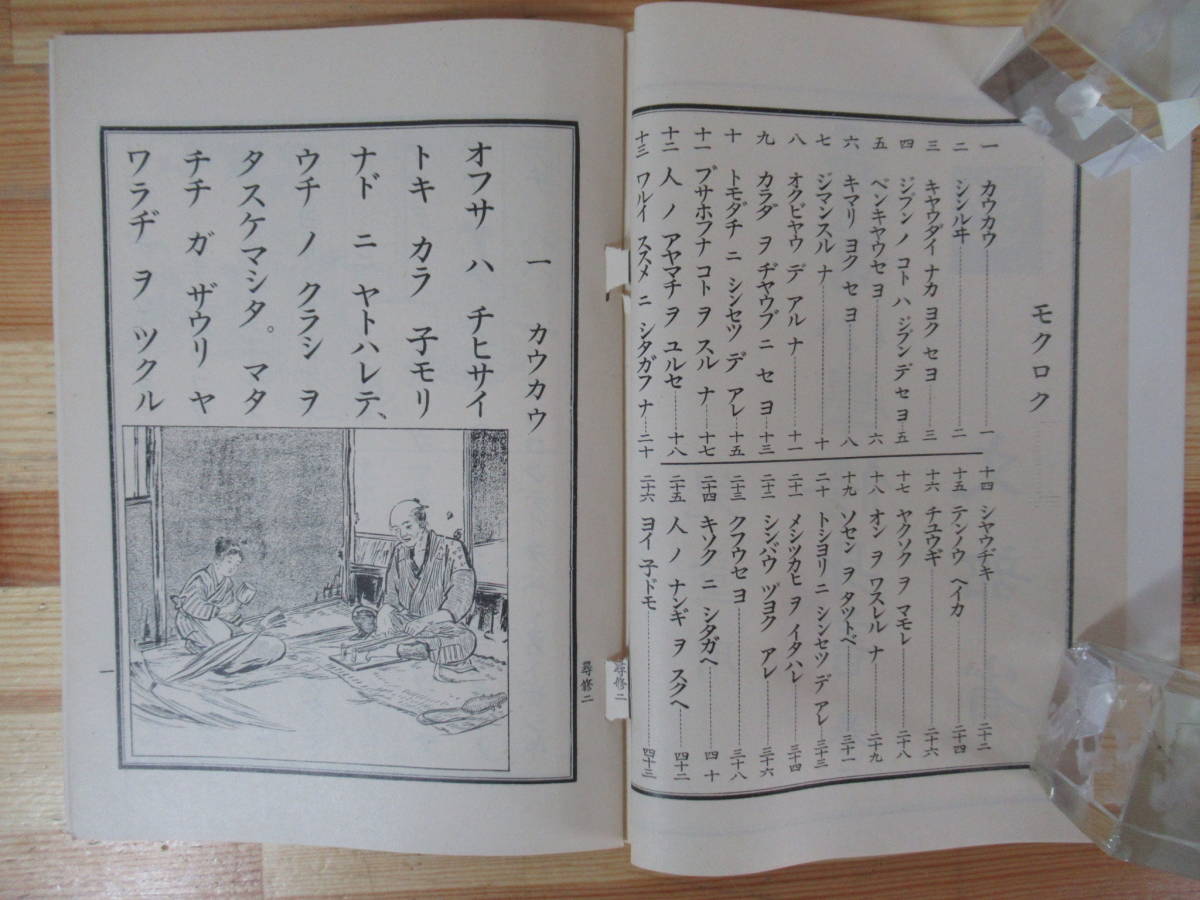 モクロク
一 カウカウ 一
二 シンルヰ 二
三 キヤウダイ ナカ ヨク セヨ 三
四 ジブン ノ コト ハ ジブン デ セヨ 五
五 ベンキヤウセヨ 六
六 キマリ ヨク セヨ 八
七 ジマンスル ナ 十
八 オクビヤウ デ アル ナ 十一
九 カラダ ヲ ヂヤウブ ニ セ ヨ 十三
十 トモダチ ニ シンセツ デ アレ 十五
十一 ブサホフナ コト ヲ スル ナ 十七
十二 人 ノ アヤマチ ヲ ユルセ 十八
十三 ワルイ ススメ ニ シタガフ ナ 二十
十四 シヤウヂキ 二十二
十五 テンノウ ヘイカ 二十四
十六 チユウギ 二十六
十七 ヤクソク ヲ マモレ 二十八
十八 オン ヲ ワスレル ナ 二十九
十九 ソセン ヲ タツトベ 三十一
二十 トシヨリ ニ シンセツ デ アレ 三十三
二十一 メシツカヒ ヲ イタハレ 三十四
二十二 シンバウ ヅヨク アレ 三十六
二十三 クフウセヨ 三十八
二十四 キソク ニ シタガヘ 四十
二十五 人 ノ ナンギ ヲ スクヘ 四十二
二十六 ヨイ 子ドモ 四十三
尋修二
尋修二
一 カウカウ
オフサ ハ チヒサイ
トキ カラ 子モリ
ナド ニ ヤトハレテ、
ウチ ノ クラシ ヲ
タスケマシタ。 マタ
チチ ガ ザウリ ヤ
ワラヂ ヲ ツクル
一